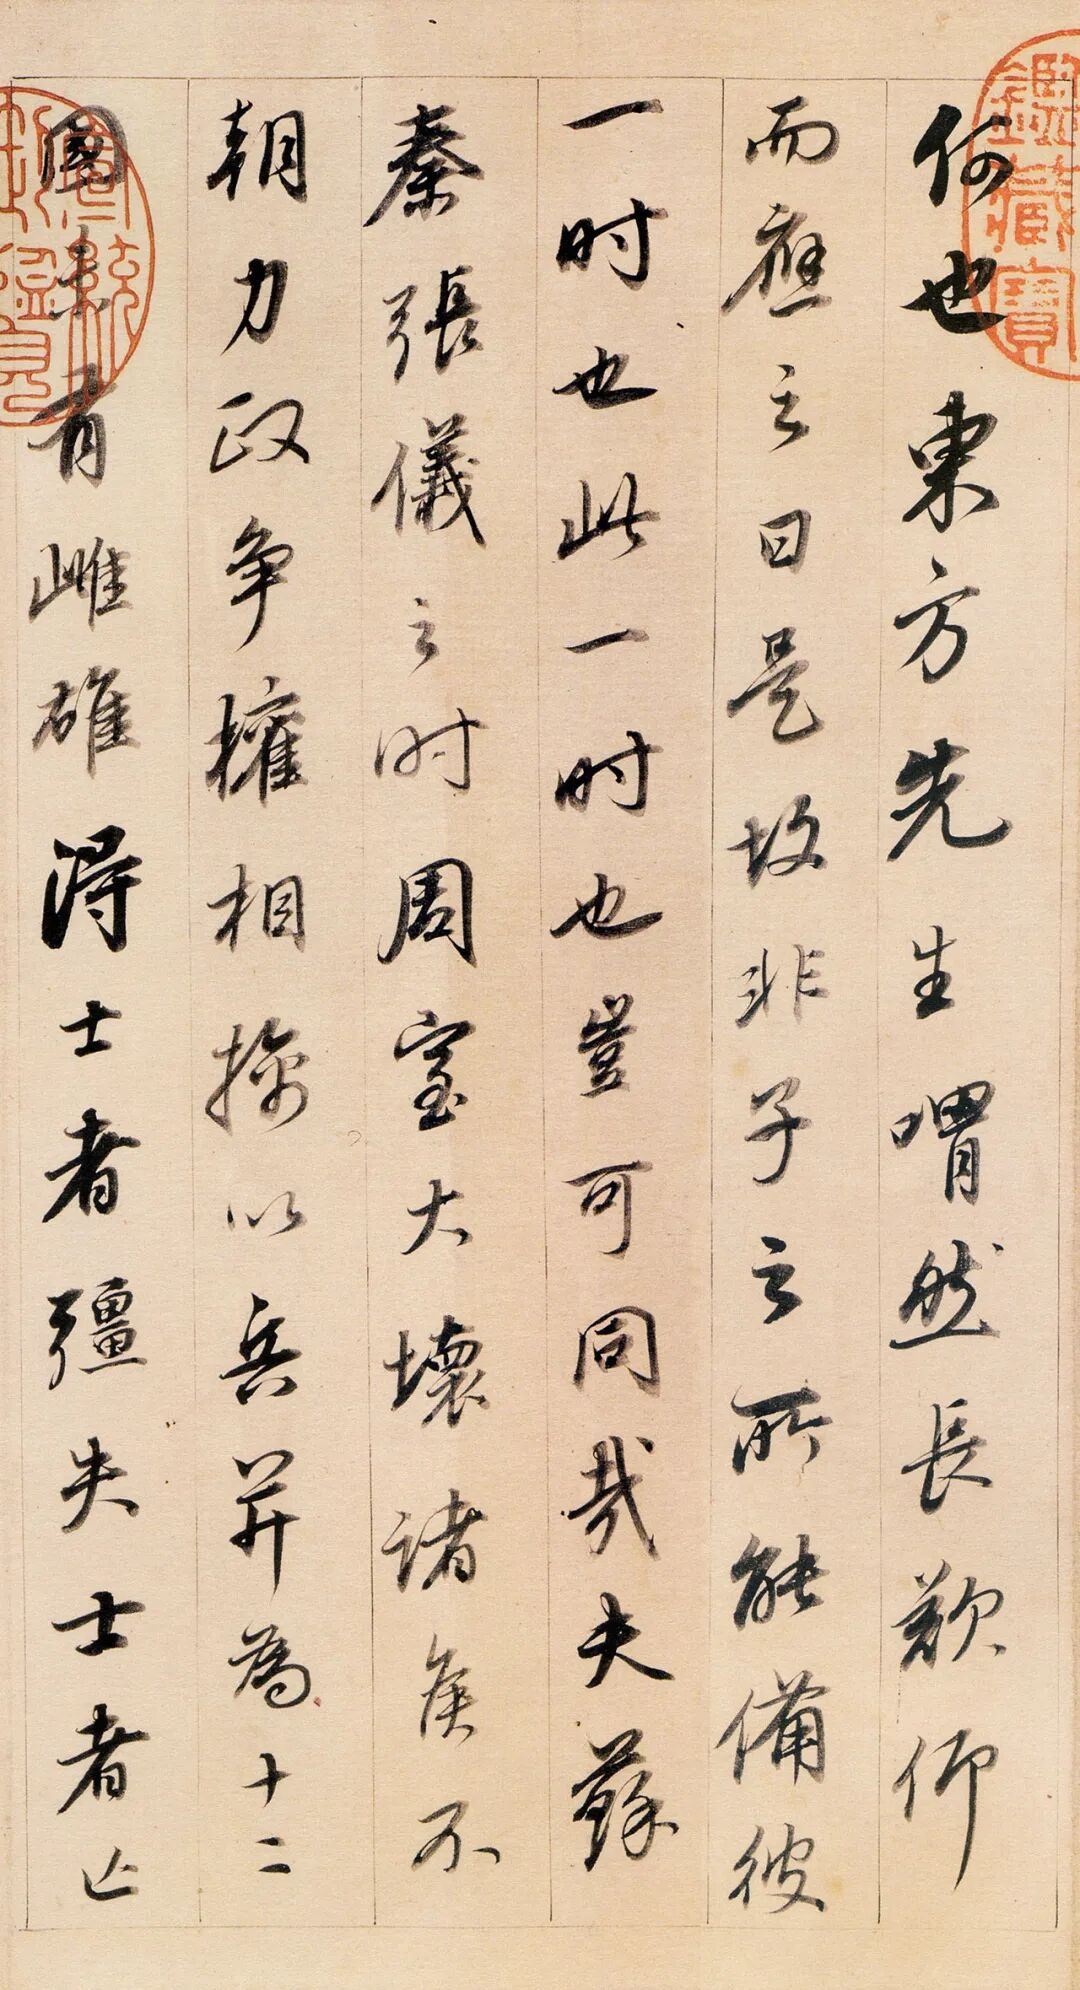 何也東方先生喟然長歎仰
而應之曰是故非子之所能備彼
一时也此一时也豈可同哉夫蘇
秦張儀之时周室大壞諸侯不
朝力政争權相擒以兵并為十二
國未有雌雄得士者彊失士者亡
鑑藏寶
宣統